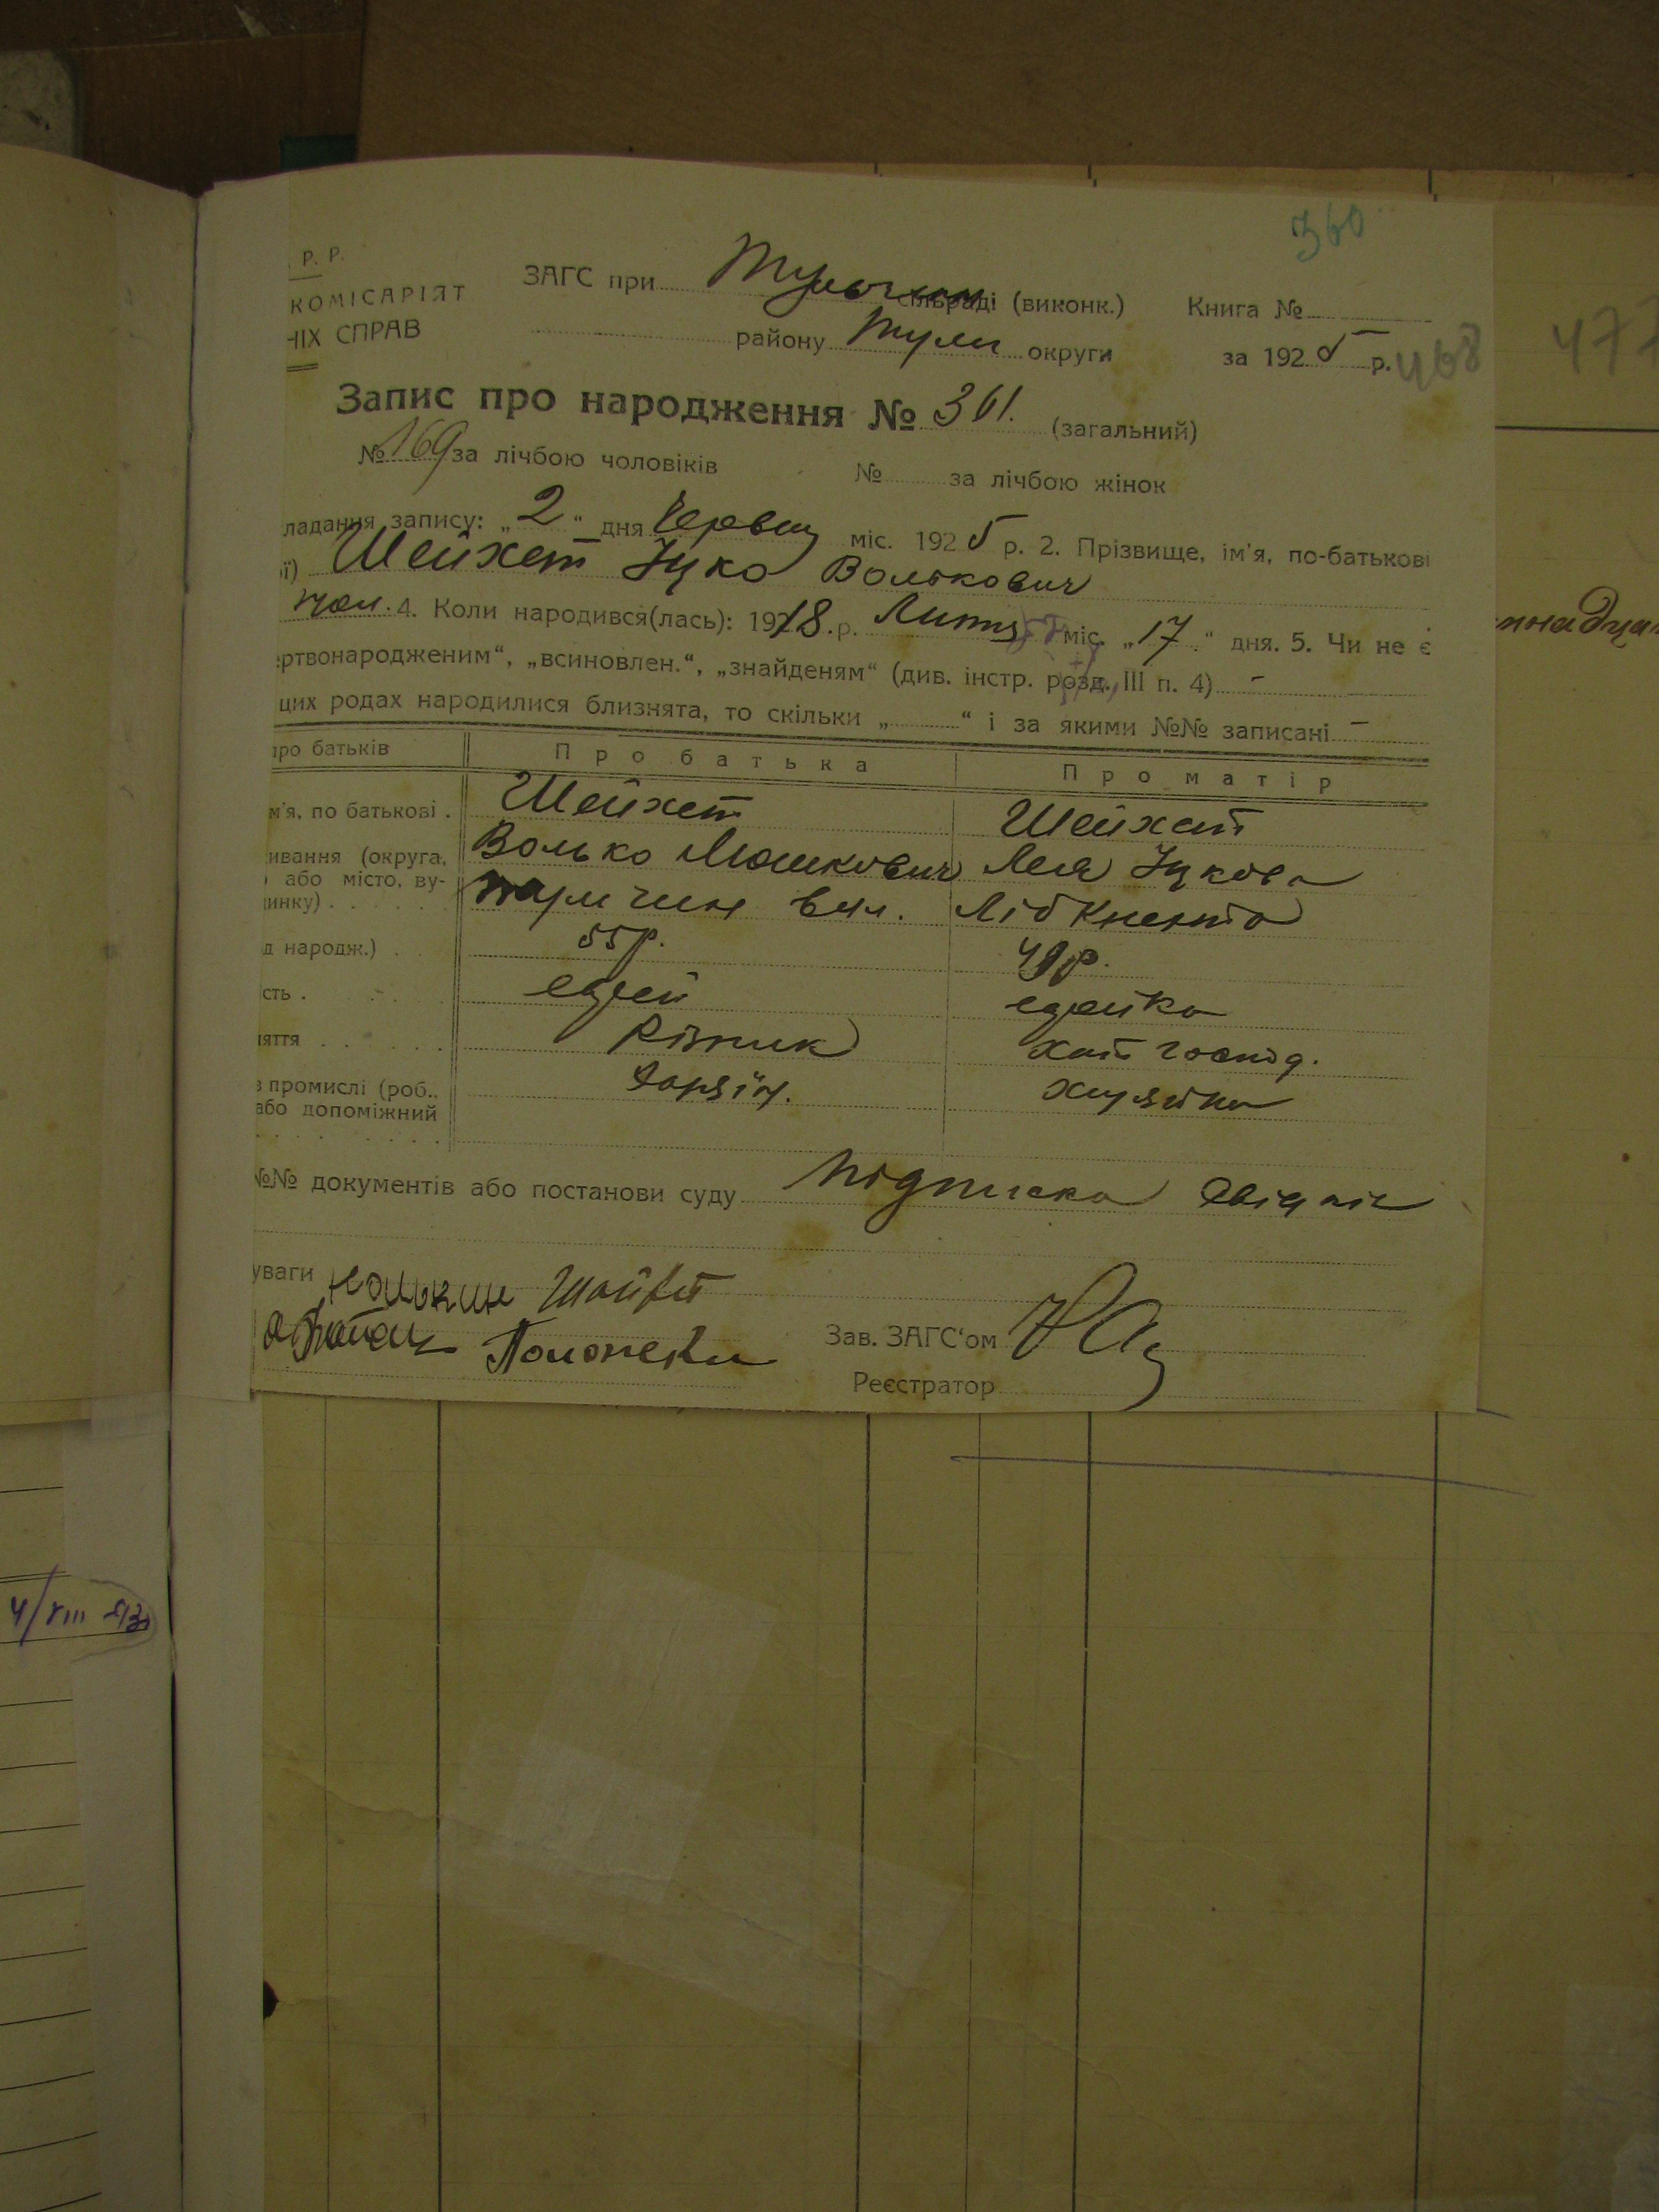 360
Р. Р.
КОМІСАРІЯТ
НІХ СПРАВ
ЗАГС при Тульчин сільраді (виконк.) Книга №
району Тульч округи за 1925 р. 468 477
Запис про народження № 361. (загальний)
№ 169 за лічбою чоловіків № за лічбою жінок
ладання запису: „2“ дня Червня міс. 1925 р. 2. Прізвище, ім'я, по-батькові
ї) Шейхет Іцко Волькович
чол. 4. Коли народився(лась): 1918. р. Липня міс. „17“ дня. 5. Чи не є
ертвонародженим“, „всиновлен.“, „знайденям“ (див. інстр. розд. III п. 4) -
цих родах народилися близнята, то скільки „ “ і за якими №№ записані -
про батьків Про батька Про матір
м'я, по батькові . Шейхет Шейхет
Волько Мошкович Лея Іцкова
ивання (округа,
або місто, ву-
инку) . Тульчин вул. Лібкнехта
д народж.) . 55р. 49р.
сть . еврей еврейка
няття . Різник хат господ.
в промислі (роб.,
або допоміжний
хазяйка
№№ документів або постанови суду Підписка
уваги
Зав. ЗАГС'ом
Реєстратор